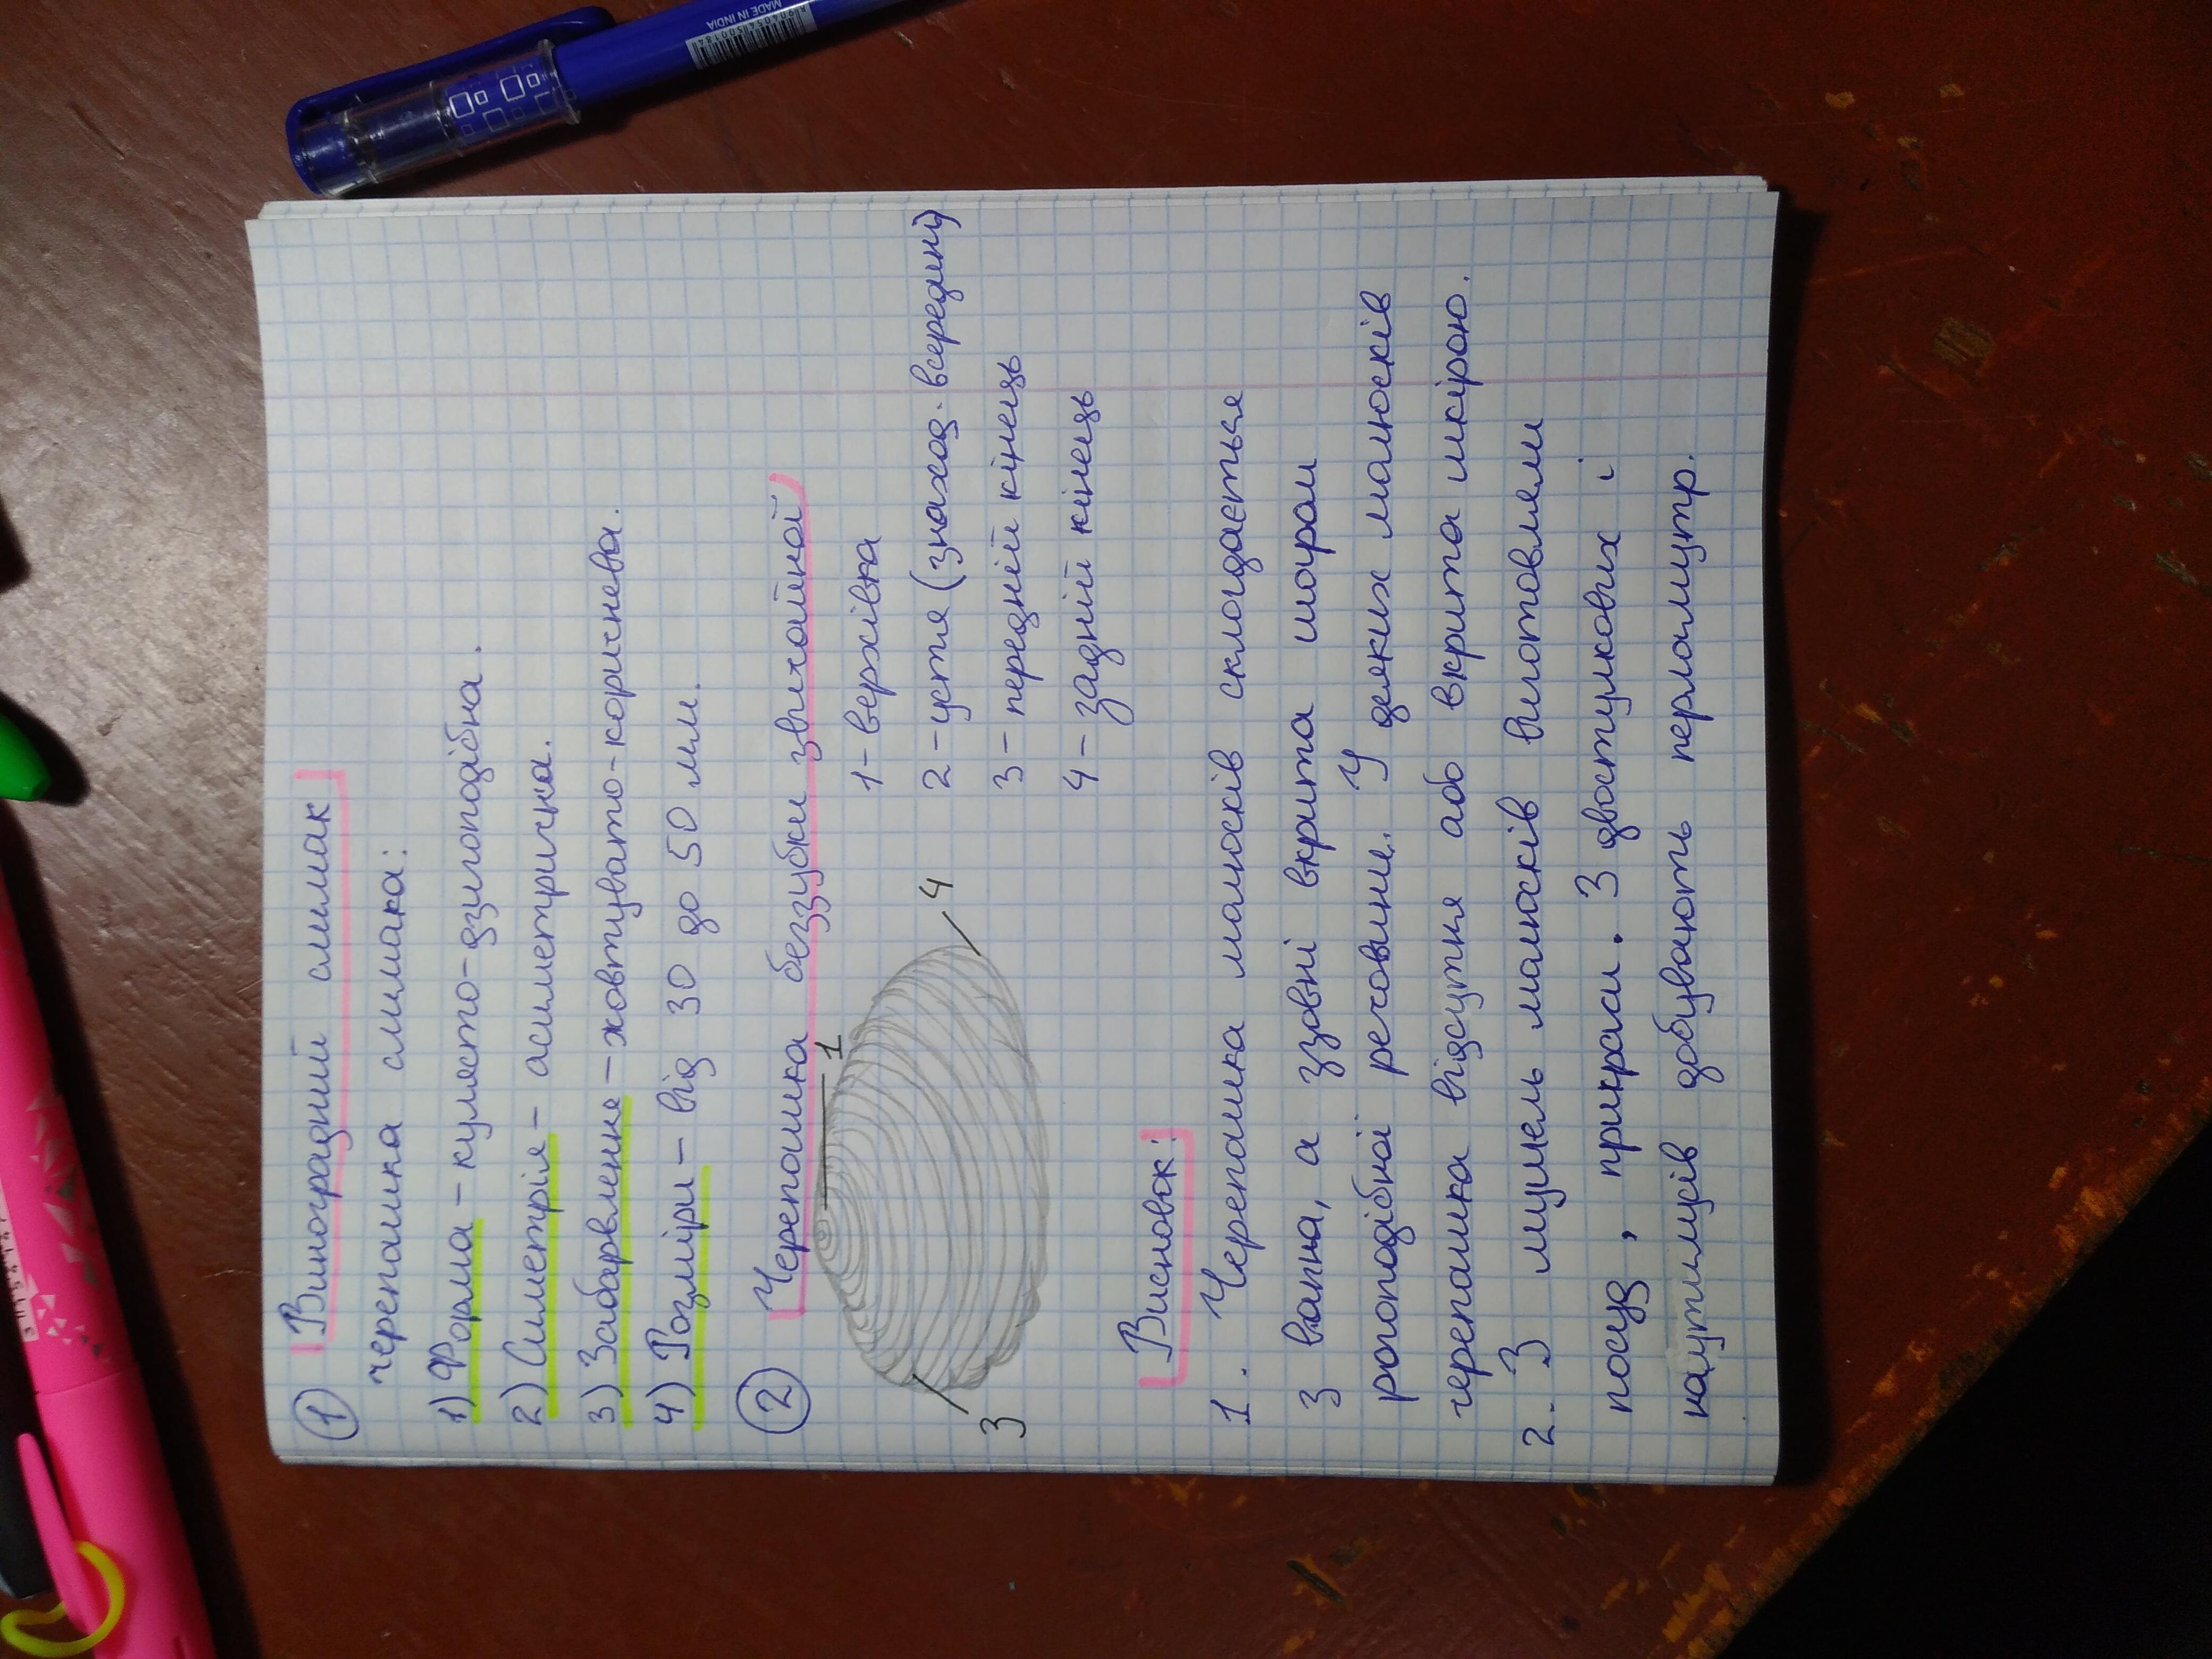 ① Виноградний слимак
черепашка слимака:
1) Форма - кулясто-дзигоподібна.
2) Симетрія - асиметрична.
3) Забарвлення - жовтувато-коричнева.
4) Розміри - від 30 до 50 мм.
② Черепашка беззубки звичайної
1 - верхівка
2 - устя (знаход. всередині)
3 - передній кінець
4 - задній кінець
1
4
3
Висновок:
1. Черепашка молюсків складається
з вапна, а ззовні вкрита шаром
рогоподібної речовини. У деяких малюсків
черепашка відсутня або вкрита шкірою.
2. З мушель малюсків виготовляли
посуд, прикраси. З двостулкових і
наутилусів добувають перламутр.
MADE IN INDIA